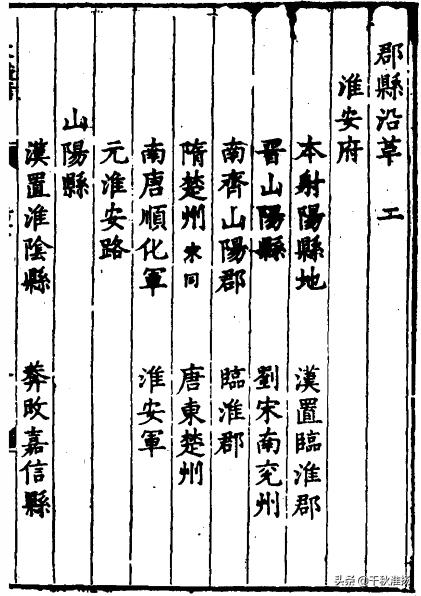 郡縣沿革　工
淮安府
本射陽縣地　漢置臨淮郡
晉山陽縣　劉宋南兖州
南齊山陽郡　臨淮郡
隋楚州宋同　唐東楚州
南唐順化軍　淮安軍
元淮安路
山陽縣
漢置淮陰縣　莽改嘉信縣
头条@千秋淮扬